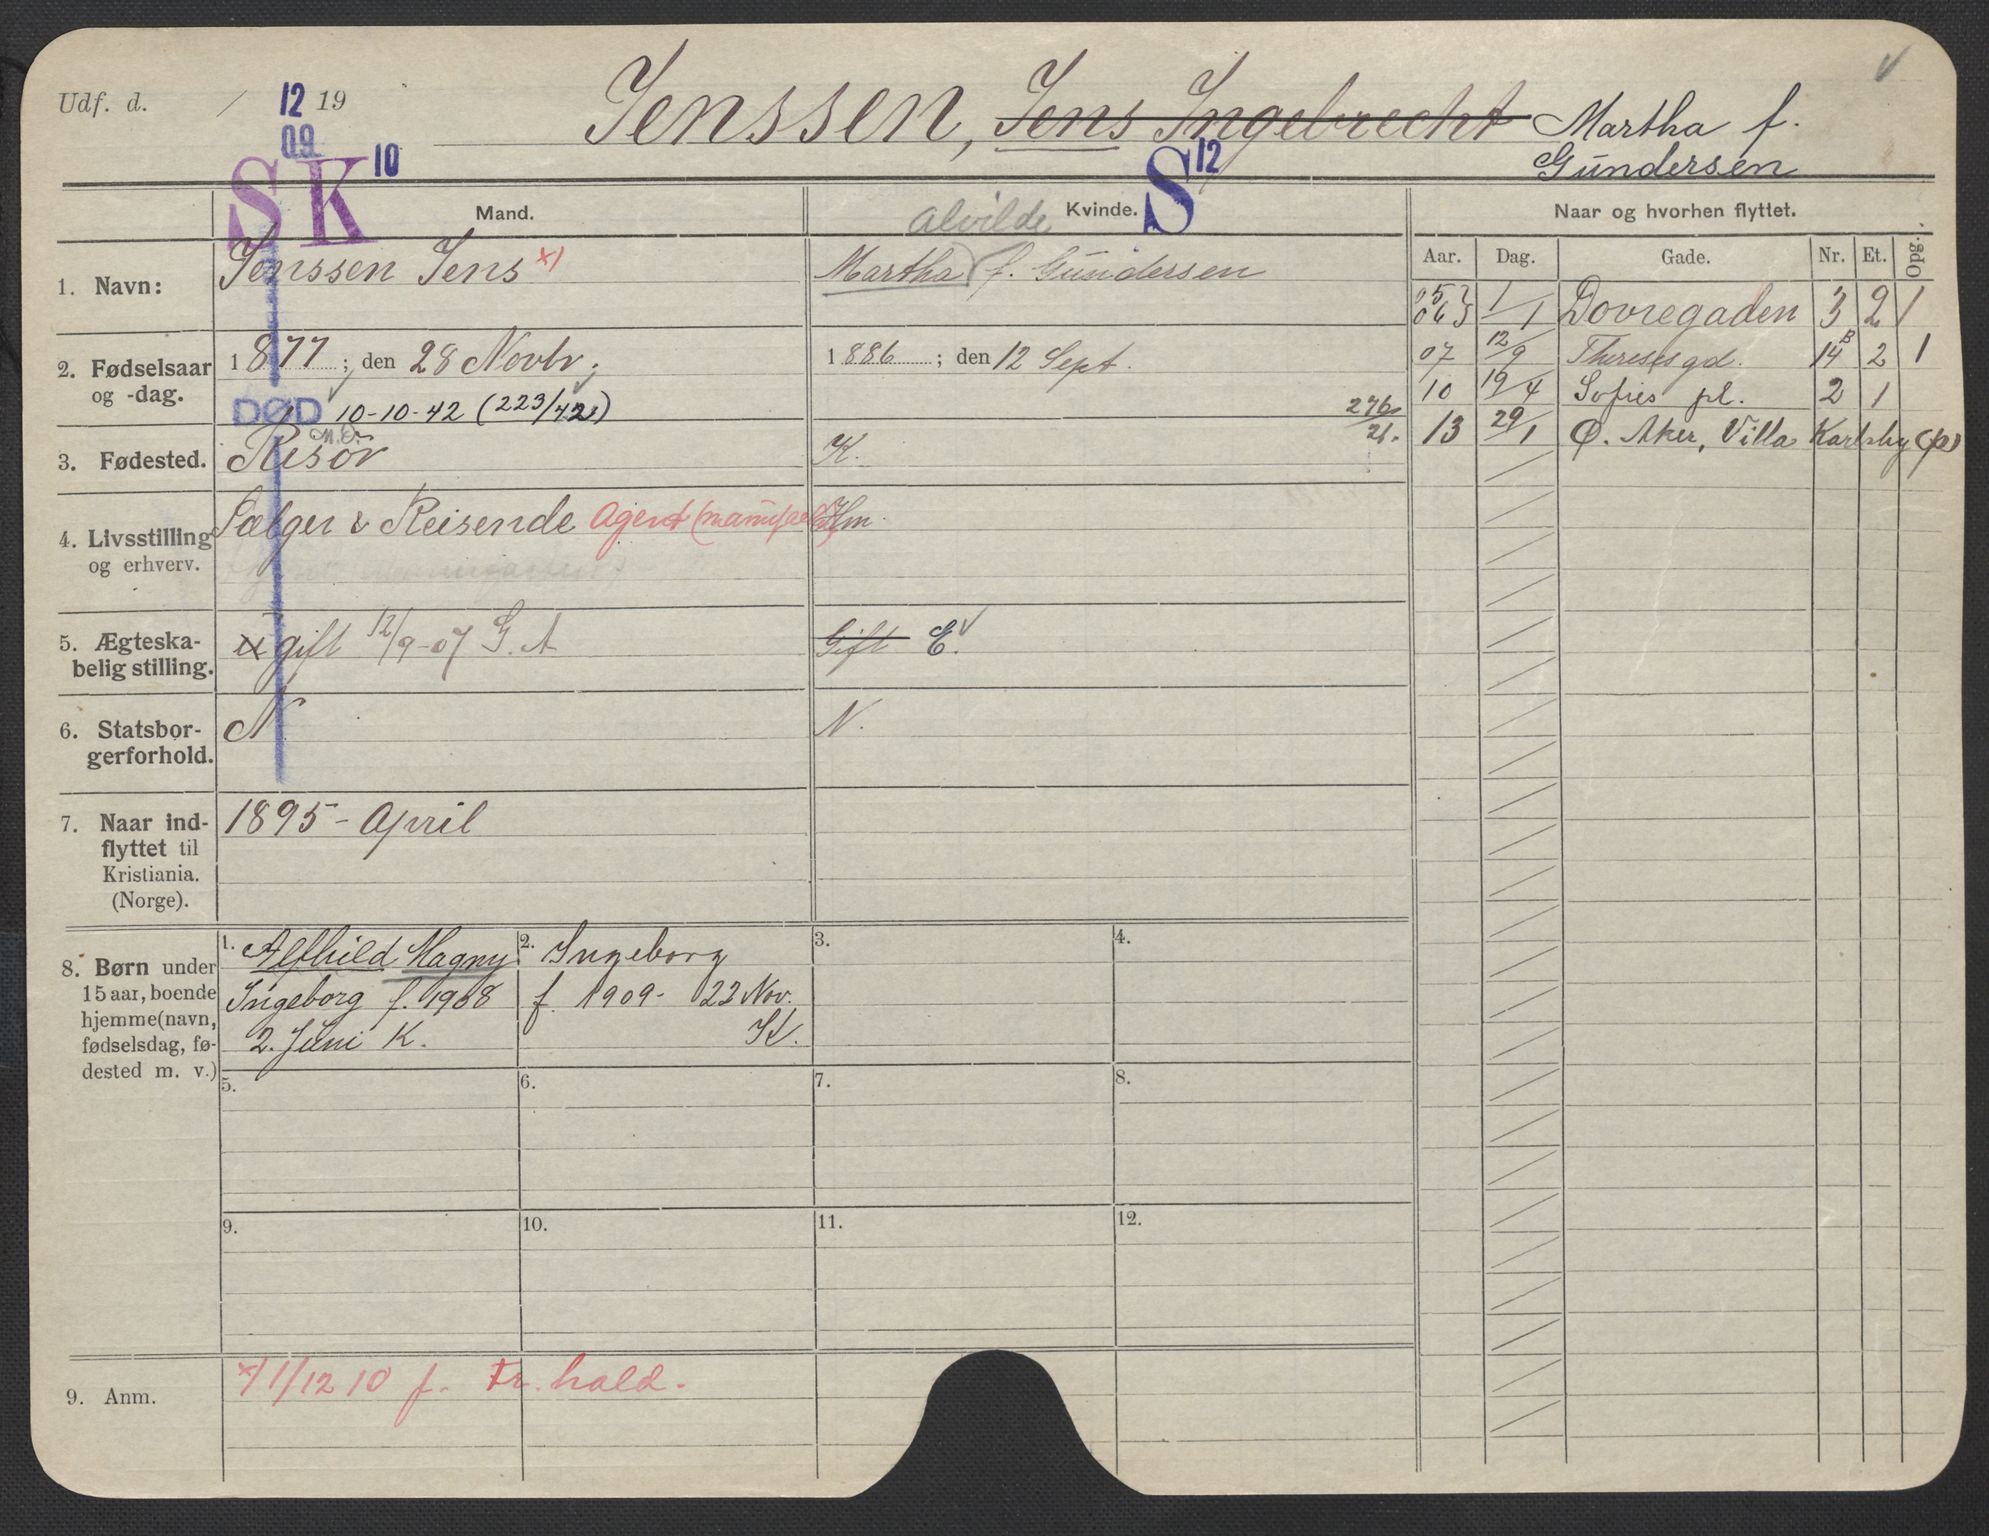 Udf. d. / 12 19
09
Jenssen, Jens Ingebrecht Martha f.
Gundersen
SK 10
S 12
Mand.
Alvilde
Kvinde.
Naar og hvorhen flyttet.
Aar. Dag. Gade. Nr. Et. Opg.
1. Navn:
Jenssen Jens x)
Martha f. Gundersen
05 } 1/1 Dovregaden 3 2 1
06
07 12/9 Theresesgd. 14 B 2 1
10 19/4 Sofies pl. 2 1
13 29/1 Ø. Aker, Villa Karlsby (p)
2. Fødselsaar
og -dag.
1877; den 28 Novbr.
1886; den 12 Sept.
DØD 10-10-42 (223/42)
276
21.
3. Fødested.
Risör
K.
4. Livsstilling
og erhverv.
Sælger & Reisende Agent (manufact)
Hm.
5. Ægteska-
belig stilling.
gift 12/9-07 G. A
Gift E.
6. Statsbor-
gerforhold.
N
N.
7. Naar ind-
flyttet til
Kristiania.
(Norge).
1895 - April
8. Børn under
15 aar, boende
hjemme (navn,
fødselsdag, fø-
dested m. v.)
1. Alfhild Magny
Ingeborg f. 1908
2. Juni K.
2. Ingeborg
f. 1909 - 22 Nov.
K.
3.
4.
5.
6.
7.
8.
9.
10.
11.
12.
9. Anm.
x) 1/12 10 f. Fr. hald.